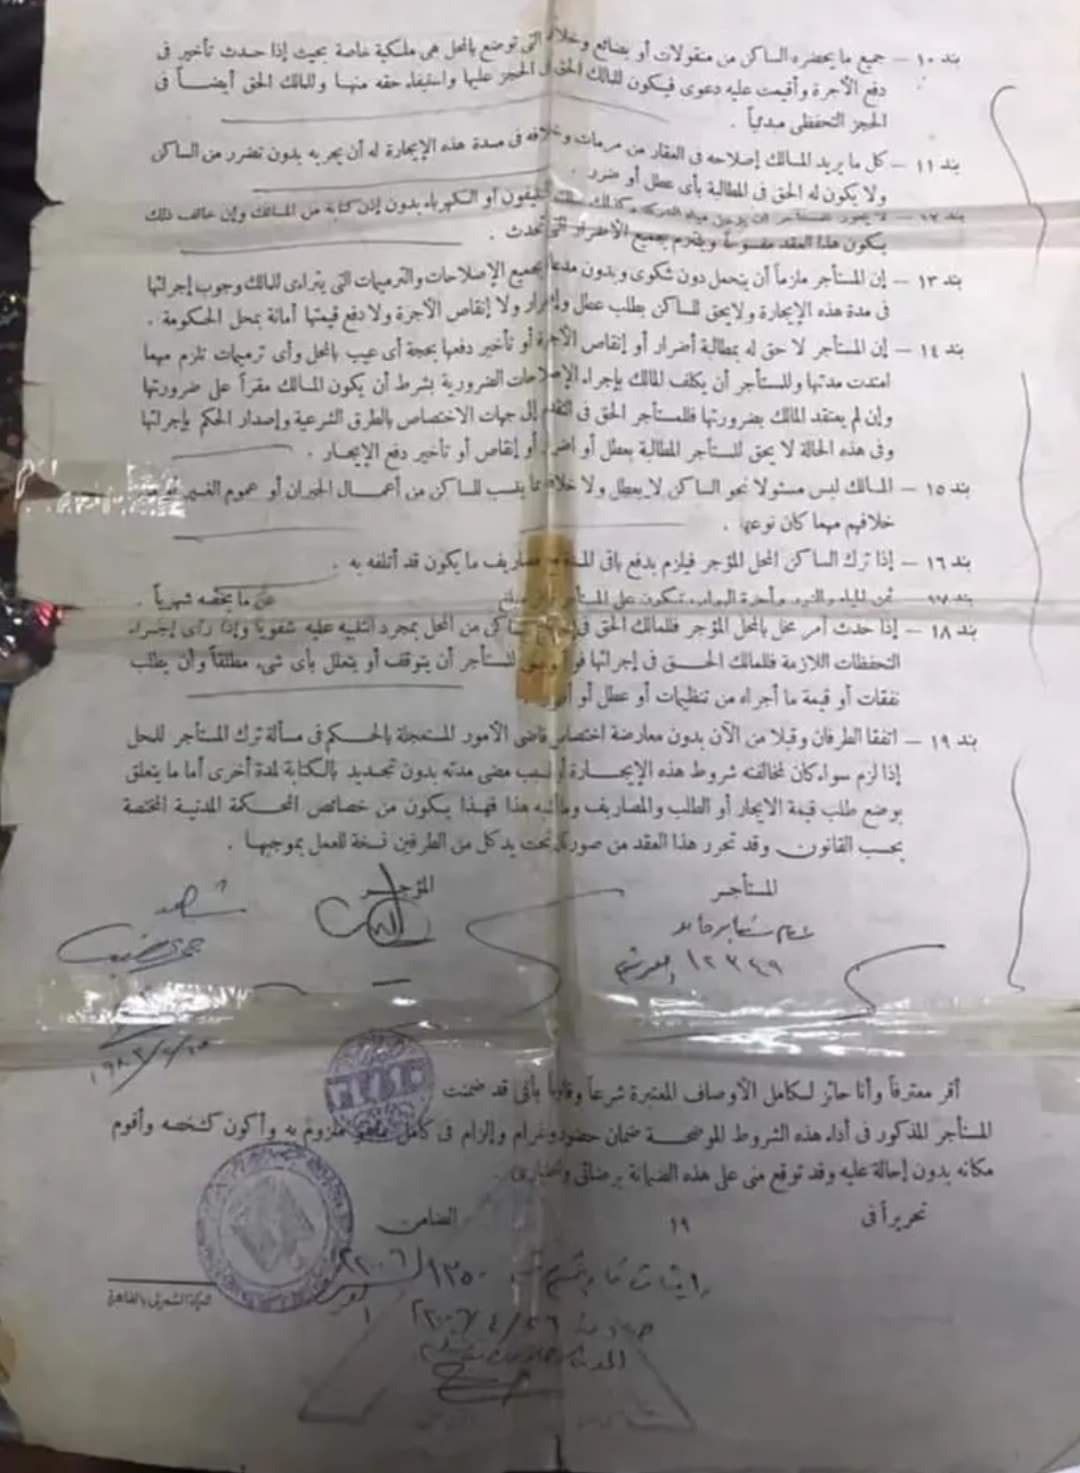 بند ١٠ – جميع ما يحضره الساكن من منقولات أو بضائع وخلافه التى توضع بالمحل هى ملكية خاصة بحيث إذا حدث تأخير فى
دفع الأجرة وأقيمت عليه دعوى فيكون للمالك الحق فى الحجز عليها واستيفاء حقه منها وللمالك الحق أيضاً فى
الحجز التحفظى مبدئياً .
بند ١١ – كل ما يريد المالك إصلاحه فى العقار من مرمات وخلافه فى مدة هذه الإيجارة له أن يجريه بدون تضرر من الساكن
ولا يكون له الحق فى المطالبة بأى عطل أو ضرر .
بند ١٢ – لا يجوز للمستأجر أن يدخل مياه الشركة وكذلك التليفون أو الكهرباء بدون إذن كتابة من المالك وإن خالف ذلك
يكون هذا العقد مفسوخاً ويلتزم بجميع الأضرار التى تحدث .
بند ١٣ – إن المستأجر ملزماً أن يتحمل دون شكوى وبدون مدعاة بجميع الإصلاحات والترميمات التى يتراءى للمالك وجوب إجرائها
فى مدة هذه الإيجارة ولا يحق للساكن بطلب عطل وإضرار ولا إنقاص الأجرة ولا دفع قيمتها أمانة بمحل الحكومة .
بند ١٤ – إن المستأجر لا حق له بمطالبة أضرار أو إنقاص الأجرة أو تأخير دفعها بحجة أى عيب بالمحل وأى ترميمات تلزم مهما
امتدت مدتها وللمستأجر أن يكلف المالك بإجراء الإصلاحات الضرورية بشرط أن يكون المالك مقراً على ضرورتها
وإن لم يعتقد المالك بضرورتها فللمستأجر الحق فى التقدم إلى جهات الاختصاص بالطرق الشرعية وإصدار الحكم بإجرائها
وفى هذه الحالة لا يحق للمستأجر المطالبة بعطل أو اضرار أو إنقاص أو تأخير دفع الإيجار .
بند ١٥ – المالك ليس مسئولا نحو الساكن لا بعطل ولا خلافه مما يتسبب للساكن من أعمال الجيران أو عموم الغير أو من
خلافهم مهما كان نوعها .
بند ١٦ – إذا ترك الساكن المحل المؤجر فيلزم بدفع باقى المدة ومصاريف ما يكون قد أتلفه به .
بند ١٧ – ثمن المياه والنور وأجرة البواب تكون على المستأجر عن ما يخصه شهرياً .
بند ١٨ – إذا حدث أمر مخل بالمحل المؤجر فللمالك الحق فى الساكن من المحل بمجرد التنبيه عليه شفوياً وإذا رأى إجراء
التحفظات اللازمة فللمالك الحق فى إجرائها فوراً للمستأجر أن يتوقف أو يتعلل بأى شىء مطلقاً وأن يطلب
نفقات أو قيمة ما أجراه من تنظيمات أو عطل أو
بند ١٩ – اتفقا الطرفان وقبلا من الآن بدون معارضة اختصاص قاضى الأمور المستعجلة بالحكم فى مسألة ترك المستأجر للمحل
إذا لزم سواء كان لمخالفته شروط هذه الإيجارة أو بسبب مضى مدته بدون تجديد بالكتابة لمدة أخرى أما ما يتعلق
بوضع طلب قيمة الايجار أو الطلب والمصاريف هذا فهذا يكون من خصائص المحكمة المدنية المختصة
بحسب القانون وقد تحرر هذا العقد من صورتان تحت يد كل من الطرفين نسخة للعمل بموجبها .
المستأجر المؤجر شاهد
١٢٣٤٩
أقر معترفاً وأنا حائز لكامل الأوصاف المعتبرة شرعاً وقانوناً بأنى قد ضمنت
المستأجر المذكور فى أداء هذه الشروط الموضحة ضمان حضور وغرام وإلزام فى كامل ما هو ملزوم به وأكون كشخصه وأقوم
مكانه بدون إحالة عليه وقد توقع منى على هذه الضمانة برضائى واختيارى .
تحريراً فى ١٩ الضامن